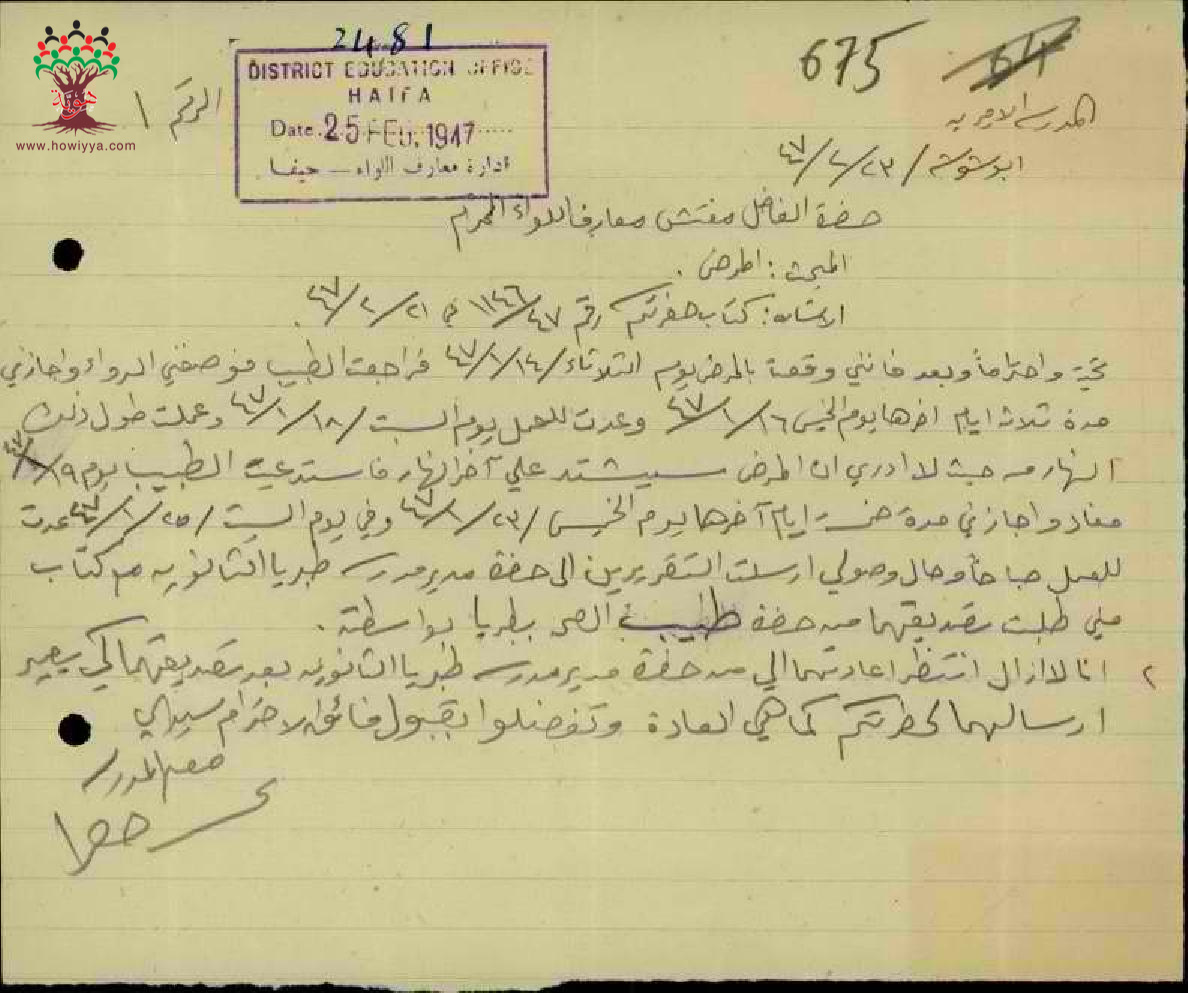 2481
675
64
DISTRICT EDUCATION OFFICE
HAIFA
Date. 25 FEB. 1947
ادارة معارف اللواء - حيفا
www.howiyya.com
الرقم ١
المدرسة الاميرية
ابو شوشة / ٢٣/٢/٤٧
حضرة الفاضل مفتش معارف اللواء المحترم
المبحث : المرض .
الاشارة : كتاب حضرتكم رقم ١١٤٦/٤٧ في ٢١/٢/٤٧ .
تحية واحتراماً وبعد فانني وقعت بالمرض يوم الثلاثاء / ١٤/١/٤٧ فراجعت الطبيب فوصفني الدواء واجازني
مدة ثلاث ايام اخرها يوم الخميس ١٦/١/٤٧ وعدت للعمل يوم السبت / ١٨/١/٤٧ وعملت طول ذلك
النهار من حيث لا ادري ان المرض سيشتد علي آخر النهار فاستدعيت الطبيب يوم ١٩/١/٤٧
فعاد واجازني مدة خمسة ايام آخرها يوم الخميس / ٢٣/١/٤٧ وفي يوم السبت / ٢٥/١/٤٧ عدت
للعمل صباحاً وحال وصولي ارسلت التقريرين الى حضرة مدير مدرسة طبريا الثانويه مع كتاب
مني طلبت تصديقهما من حضرة طبيب الصحة بطبريا بواسطته .
٢ انا لا ازال انتظر اعادتهما الي من حضرة مدير مدرسة طبريا الثانويه بعد تصديقهما لكي يصير
ارسالهما لحضرتكم كما هي العادة وتفضلوا بقبول فائق الاحترام سيدي
معلم المدرسة